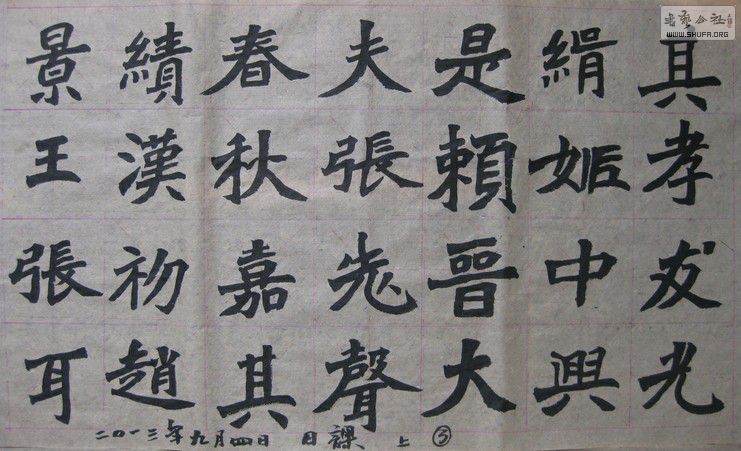 其孝友光
緝姬中興
是賴晉大
夫張老聲
春秋嘉其
績漢初趙
景王張耳
二〇一三年九月四日 日課 上
書藝公社
WWW.SHUFA.ORG